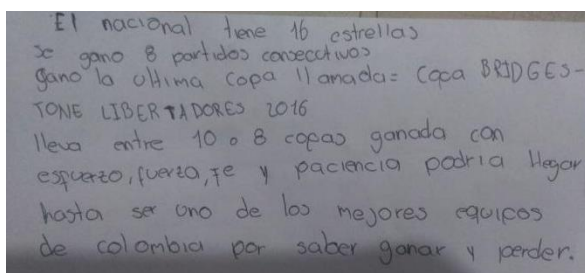 El nacional tiene 16 estrellas
se gano 8 partidos consecutivos
gano la ultima copa llamada= Copa BRIDGES-
TONE LIBERTADORES 2016
lleva entre 10 o 8 copas ganada con
esfuerzo, fuerza, fe y paciencia podria llegar
hasta ser uno de los mejores equipos
de colombia por saber ganar y perder.